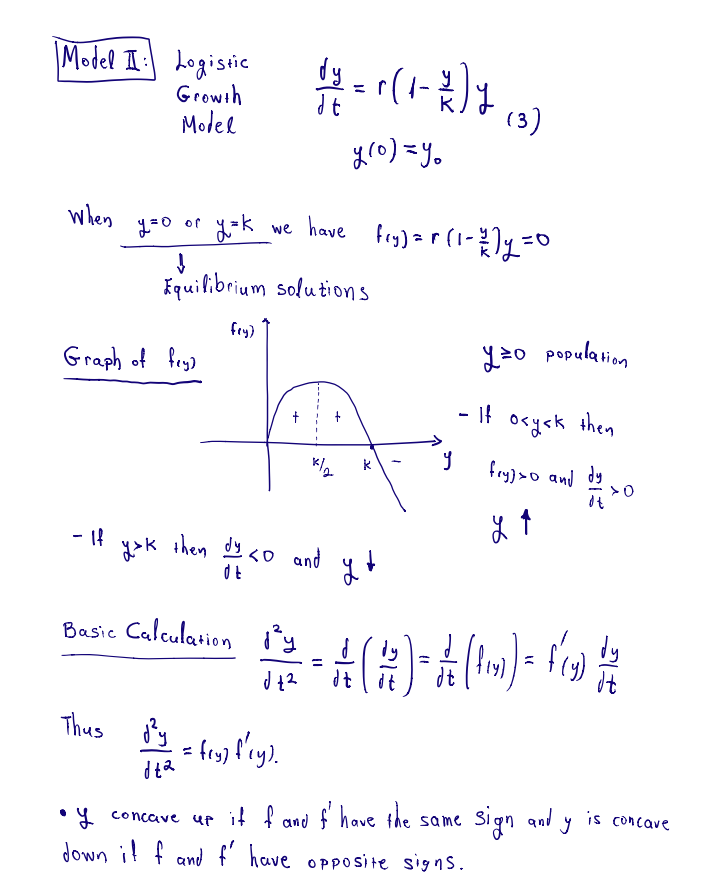 Model II: Logistic Growth Model
dy/dt = r(1 - y/k) y (3)
y(0) = y₀
When y=0 or y=k we have f(y) = r(1 - y/k)y = 0
↓
Equilibrium solutions
Graph of f(y)
f(y)
+ +
k/2 k - y
y≥0 population
- If 0<y<k then
f(y)>0 and dy/dt >0
y ↑
- If y>k then dy/dt <0 and y ↓
Basic Calculation d²y/dt² = d/dt (dy/dt) = d/dt (f(y)) = f'(y) dy/dt
Thus d²y/dt² = f(y) f'(y).
• y concave up if f and f' have the same sign and y is concave
down if f and f' have opposite signs.